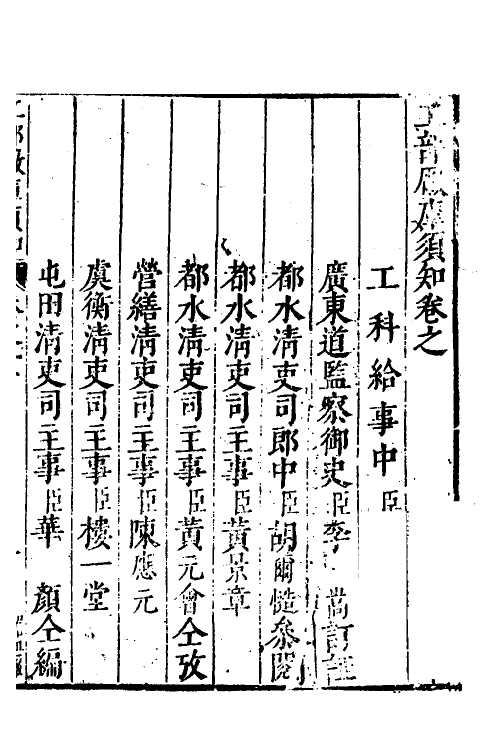 工部廠庫須知卷之
工科給事中臣
廣東道監察御史臣李 嵩訂註
都水清吏司郎中臣胡爾慥參閱
都水清吏司主事臣黃景章
都水清吏司主事臣黃元會仝攷
營繕清吏司主事臣陳應元
虞衡清吏司主事臣樓一堂
屯田清吏司主事臣華 顏仝編